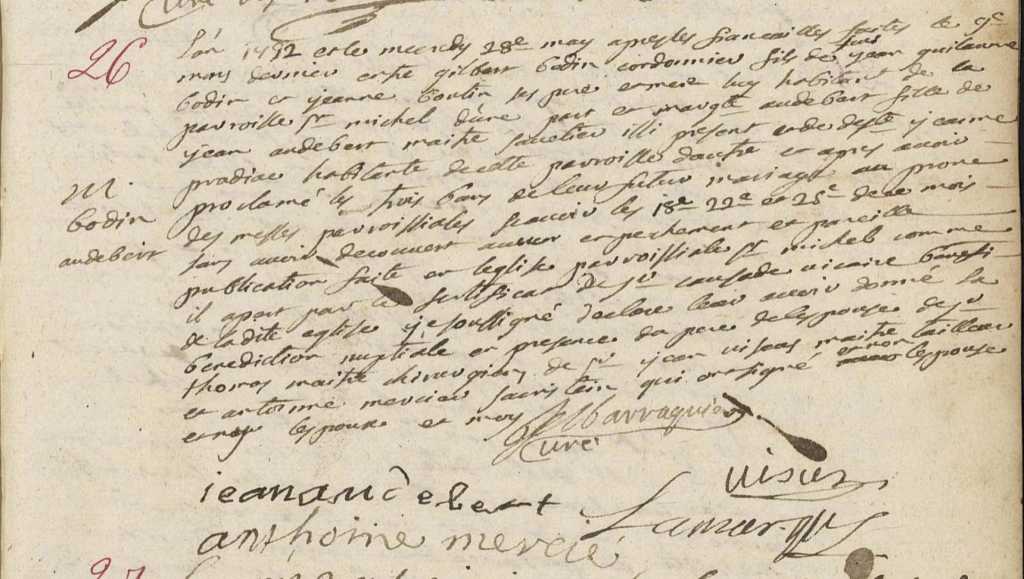 26
L'an 1752 et le mecredy 28e may apres les fiancailles faites le 9e
mars dernier entre gilbert bodin cordonnier fils de feus jean guilaume
bodin et jeanne boutin ses pere et mere luy habitant de la
parroisse st michel d'une part et margte audebert fille de
jean audebert maitre illi present et de defte jeanne
pradiac habitante de cette parroisse d'autre et apres avoir
proclamé les trois bans de leur futur mariage au prone
des messes parroissiales scavoir les 18e 22e et 25e de ce mois
sans avoir decouvert aucun empechement et pareille
publication faite en l'eglise parroissiale st michel comme
il apert par le certificat de sr causade vicaire
de ladite eglise je soussigné declare leur avoir donné la
benediction nuptiale en presence du pere de l'epouse de sr
thomas maitre chirurgien de sr jean visous maitre tailleur
et antoinne mercier sacristain qui ont signé et non l'epouse
et moy
m.
bodin
audebert
Barraquier
curé
jean audebert
visous
anthoine mercié
Lamarque
27